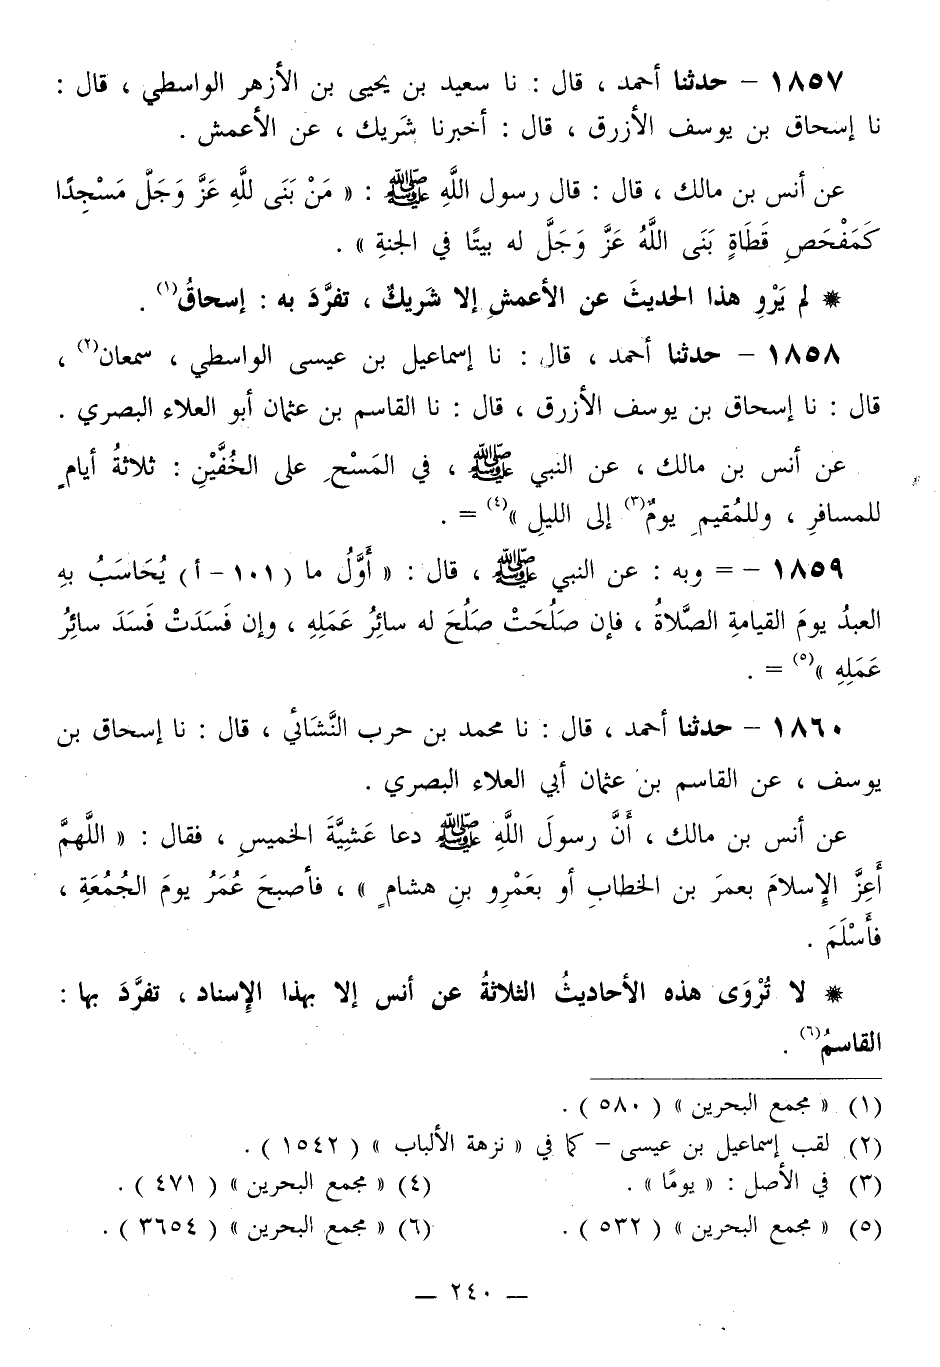 ١٨٥٧ - حدثنا أحمد ، قال : نا سعيد بن يحيى بن الأزهر الواسطي ، قال :
نا إسحاق بن يوسف الأزرق ، قال : أخبرنا شَريك ، عن الأعمش .
عن أنس بن مالك ، قال : قال رسول اللَّهِ ﷺ : « مَنْ بَنَى للَّهِ عَزَّ وَجَلَّ مَسْجِدًا
كَمَفْحَصِ قَطَاةٍ بَنَى اللَّهُ عَزَّ وَجَلَّ له بيتًا في الجنةِ » .
* لم يَرْوِ هذا الحديثَ عن الأعمشِ إلا شَريكٌ ، تفرَّدَ به : إسحاقُ(١) .
١٨٥٨ - حدثنا أحمد ، قال : نا إسماعيل بن عيسى الواسطي ، سمعان(٢) ،
قال : نا إسحاق بن يوسف الأزرق ، قال : نا القاسم بن عثمان أبو العلاء البصري .
عن أنس بن مالك ، عن النبي ﷺ ، في المَسْحِ على الخُفَّيْنِ : ثلاثةُ أيامٍ
للمسافرِ ، وللمُقيمِ يومٌ(٣) إلى الليلِ »(٤) = .
١٨٥٩ - = وبه : عن النبي ﷺ ، قال : « أَوَّلُ ما ( ١٠١ - أ ) يُحَاسَبُ بهِ
العبدُ يومَ القيامةِ الصَّلاةُ ، فإن صَلُحَتْ صَلُحَ له سائِرُ عَمَلِهِ ، وإن فَسَدَتْ فَسَدَ سائِرُ
عَمَلِهِ »(٥) = .
١٨٦٠ - حدثنا أحمد ، قال : نا محمد بن حرب النَّشَائي ، قال : نا إسحاق بن
يوسف ، عن القاسم بن عثمان أبي العلاء البصري .
عن أنس بن مالك ، أَنَّ رسولَ اللَّهِ ﷺ دعا عَشِيَّةَ الخميسِ ، فقال : « اللَّهمَّ
أَعِزَّ الإِسلامَ بعمرَ بن الخطابِ أو بعَمْرِو بنِ هشامٍ » ، فأصبحَ عُمَرُ يومَ الجُمُعَةِ ،
فأَسْلَمَ .
* لا تُرْوَى هذه الأحاديثُ الثلاثةُ عن أنس إلا بهذا الإِسناد ، تفرَّدَ بها :
القاسمُ(٦) .
(١) « مجمع البحرين » ( ٥٨٠ ) .
(٢) لقب إسماعيل بن عيسى - كما في « نزهة الألباب » ( ١٥٤٢ ) .
(٣) في الأصل : « يومًا » . (٤) « مجمع البحرين » ( ٤٧١ ) .
(٥) « مجمع البحرين » ( ٥٣٢ ) . (٦) « مجمع البحرين » ( ٣٦٥٤ ) .
— ٢٤٠ —